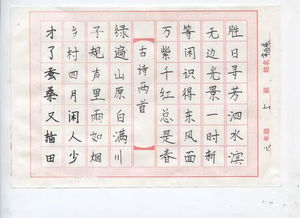 六年级 上 班 姓名
胜日寻芳泗水滨
无边光景一时新
等闲识得东风面
万紫千红总是春
古诗两首
绿遍山原白满川
子规声里雨如烟
乡村四月闲人少
才了蚕桑又插田